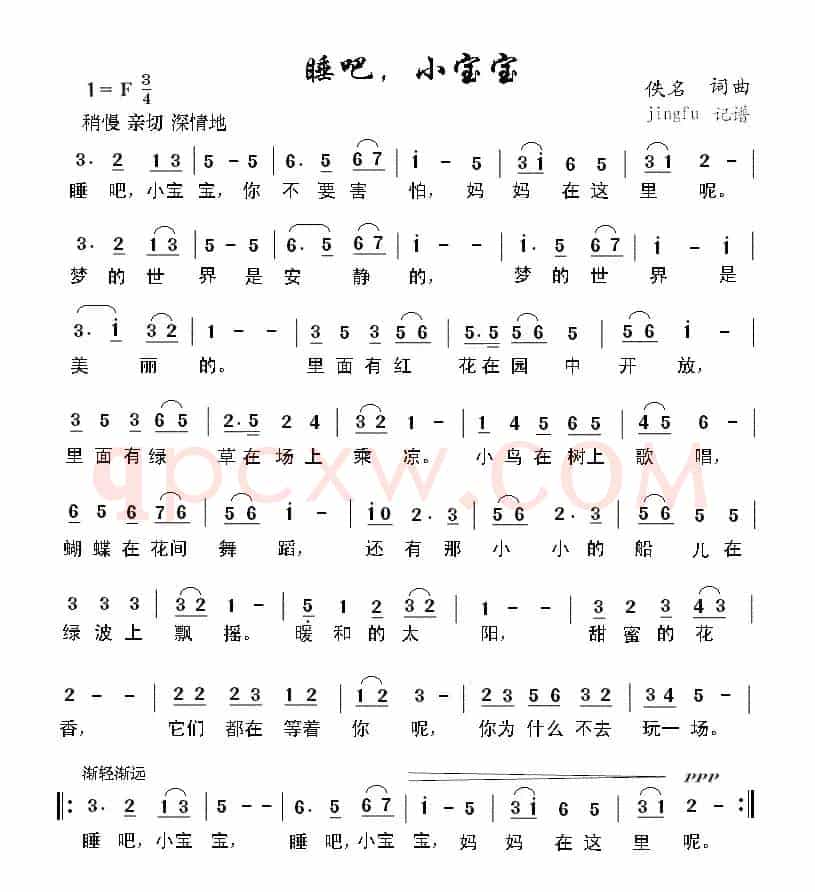 睡吧，小宝宝
1=F 3/4
佚名 词曲
稍慢 亲切 深情地
jingfu 记谱
3· 2 1 3 | 5 - 5 | 6· 5 6 7 | i - 5 | 3 i 6 5 | 3 1 2 - |
睡 吧，小宝 宝，你 不 要害 怕，妈 妈 在这 里 呢。
3· 2 1 3 | 5 - 5 | 6· 5 6 7 | i - - | i· 5 6 7 | i - i |
梦 的 世 界 是 安 静 的， 梦 的 世 界 是
3· i 3 2 | 1 - - | 3 5 3 5 5 6 | 5·5 5 6 5 | 7 6 5 - |
美 丽 的。 里面有红 花在园 中 开 放，
3 5 3 6 5 | 2·5 2 4 | 3 2 1 - | 1 4 5 6 5 | 4 5 6 - |
里面有绿 草在场上 乘 凉。 小鸟在树上 歌 唱，
6 5 6 7 6 | 5 6 i - | i0 2· 3 | 5 6 2· 3 | 5 6 5 5 |
蝴蝶在花间 舞 蹈， 还 有 那 小 小 的 船 儿 在
3 3 3 | 3 2 1 - | 5 1 2 3 2 | 1 - - | 3 2 3 4 3 |
绿波上 飘 摇。 暖和的太 阳， 甜蜜的花
2 - - | 2 2 2 3 1 2 | 1 2 3 - | 2 3 5 6 3 2 | 3 4 5 - |
香， 它们 都在 等着 你 呢， 你为 什么 不去 玩一 场。
渐轻渐远
ppp
‖: 3· 2 1 3 | 5 - - | 6· 5 6 7 | i - 5 | 3 i 6 5 | 3 1 2 - :‖
睡 吧，小宝 宝， 睡 吧，小宝 宝， 妈 妈 在这 里 呢。
qpcxw.COM